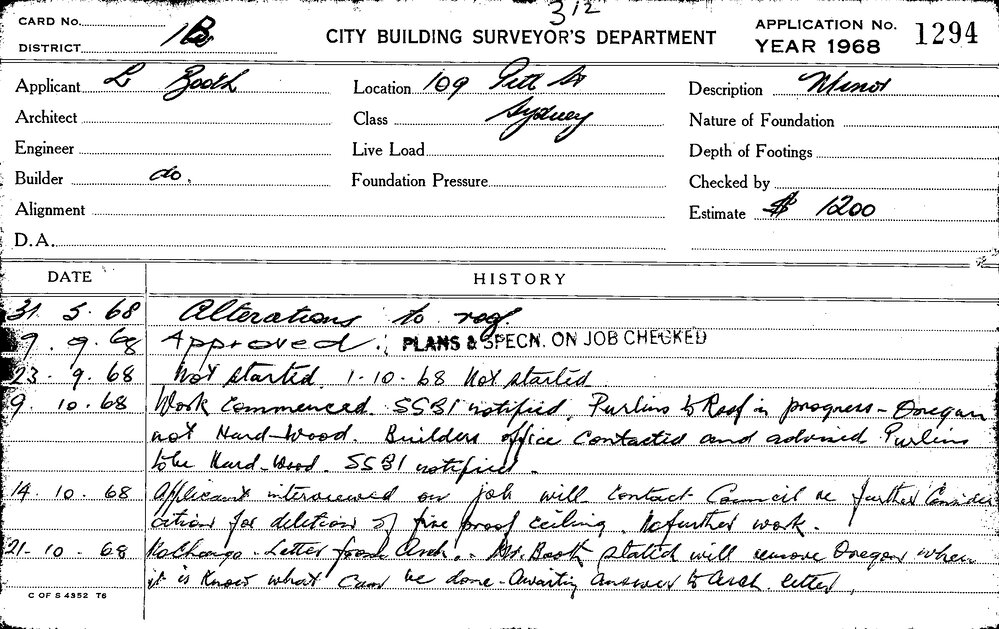 312
CARD No.
DISTRICT 1B
CITY BUILDING SURVEYOR'S DEPARTMENT
APPLICATION No. 1294
YEAR 1968
Applicant L Booth
Location 109 Pitt St
Sydney
Description Minor
Architect
Class
Nature of Foundation
Engineer
Live Load
Depth of Footings
Builder do.
Foundation Pressure
Checked by
Alignment
Estimate $ 1200
D.A.
DATE HISTORY
31. 5. 68 Alterations to roof.
9. 9. 68 Approved. PLANS & SPECN. ON JOB CHECKED
23. 9. 68 Not started. 1-10-68 Not started
9. 10. 68 Work Commenced. SSBI notified. Purlins to Roof in progress - Oregon
not Hard-Wood. Builders office contacted and advised Purlins
to be Hard-Wood. SSBI notified.
14. 10. 68 Applicant interviewed on job will contact Council re further Consider
ation for deletion of fire proof ceiling. No further work.
21. 10. 68 No Change. Letter from Arch. Mr. Booth stated will remove Oregon when
it is know what can be done - Awaiting answer to Arch letter.
C OF S 4352 T6